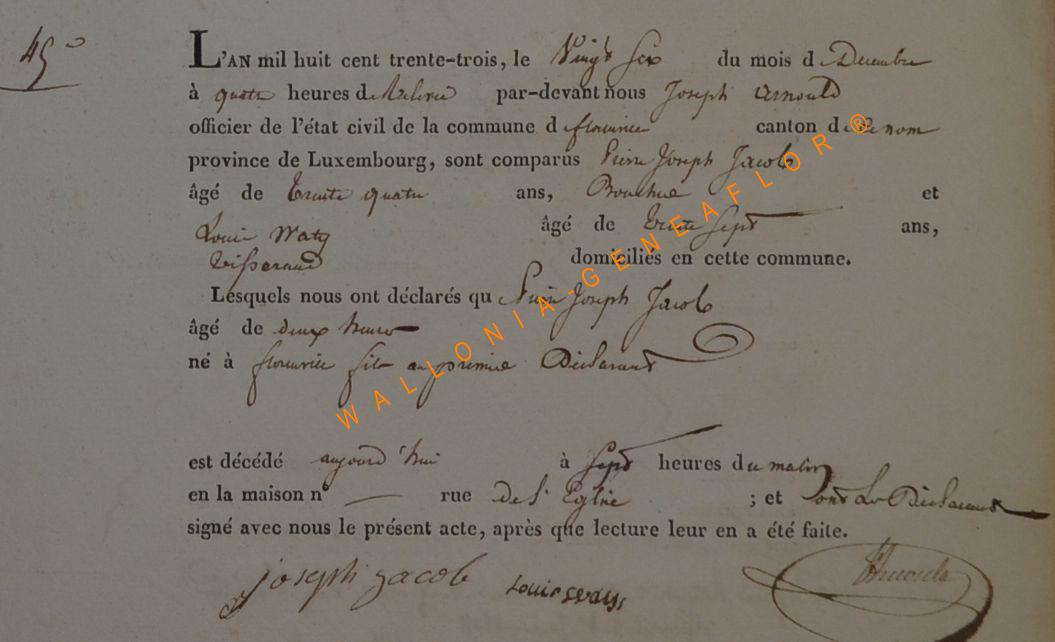 45°
L'AN mil huit cent trente-trois, le Vingt Six du mois de Decembre
à quatre heures de Relevée par-devant nous Joseph Arnould
officier de l'état civil de la commune de florenville canton de Ce nom
province de Luxembourg, sont comparus Pierre Joseph Jacob
âgé de trente quatre ans, Boucher et
Louis Waty âgé de trente Sept ans,
tisserand domiciliés en cette commune.
Lesquels nous ont déclarés que Pierre Joseph Jacob
âgé de deux heures
né à florenville fils au premier Déclarant
est décédé aujourd'hui à Sept heures du matin
en la maison n° — rue de l'Eglise ; et ont Les Déclarants
signé avec nous le présent acte, après que lecture leur en a été faite.
joseph jacob Louis
WALLONIA-GENEAFLOR®